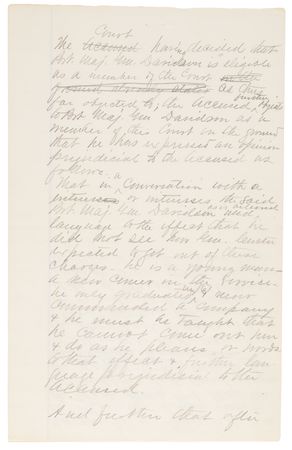 Court
The Accused having decided that
Bvt. Maj. Gen Davidson is eligible
as a member of the Court on the
ground already stated as thus
far objected to; the accused further objects
to Bvt Maj. Gen Davidson as a
member of this Court on the ground
that he has expressed an opinion
prejudicial to the accused as
follows.
That in a Conversation with a
witness or witnesses the said
Bvt. Maj. Gen Davidson used
language to the effect that he
did not see how Gen. Custer
expected to get out of these
charges. He is a young man
a new comer in the service.
he only graduated in 61 & never
commanded a company
& he must be taught that
he cannot come out here
& do as he pleases or words
to that effect & further lan
guage prejudicial to the
accused.
And further that after